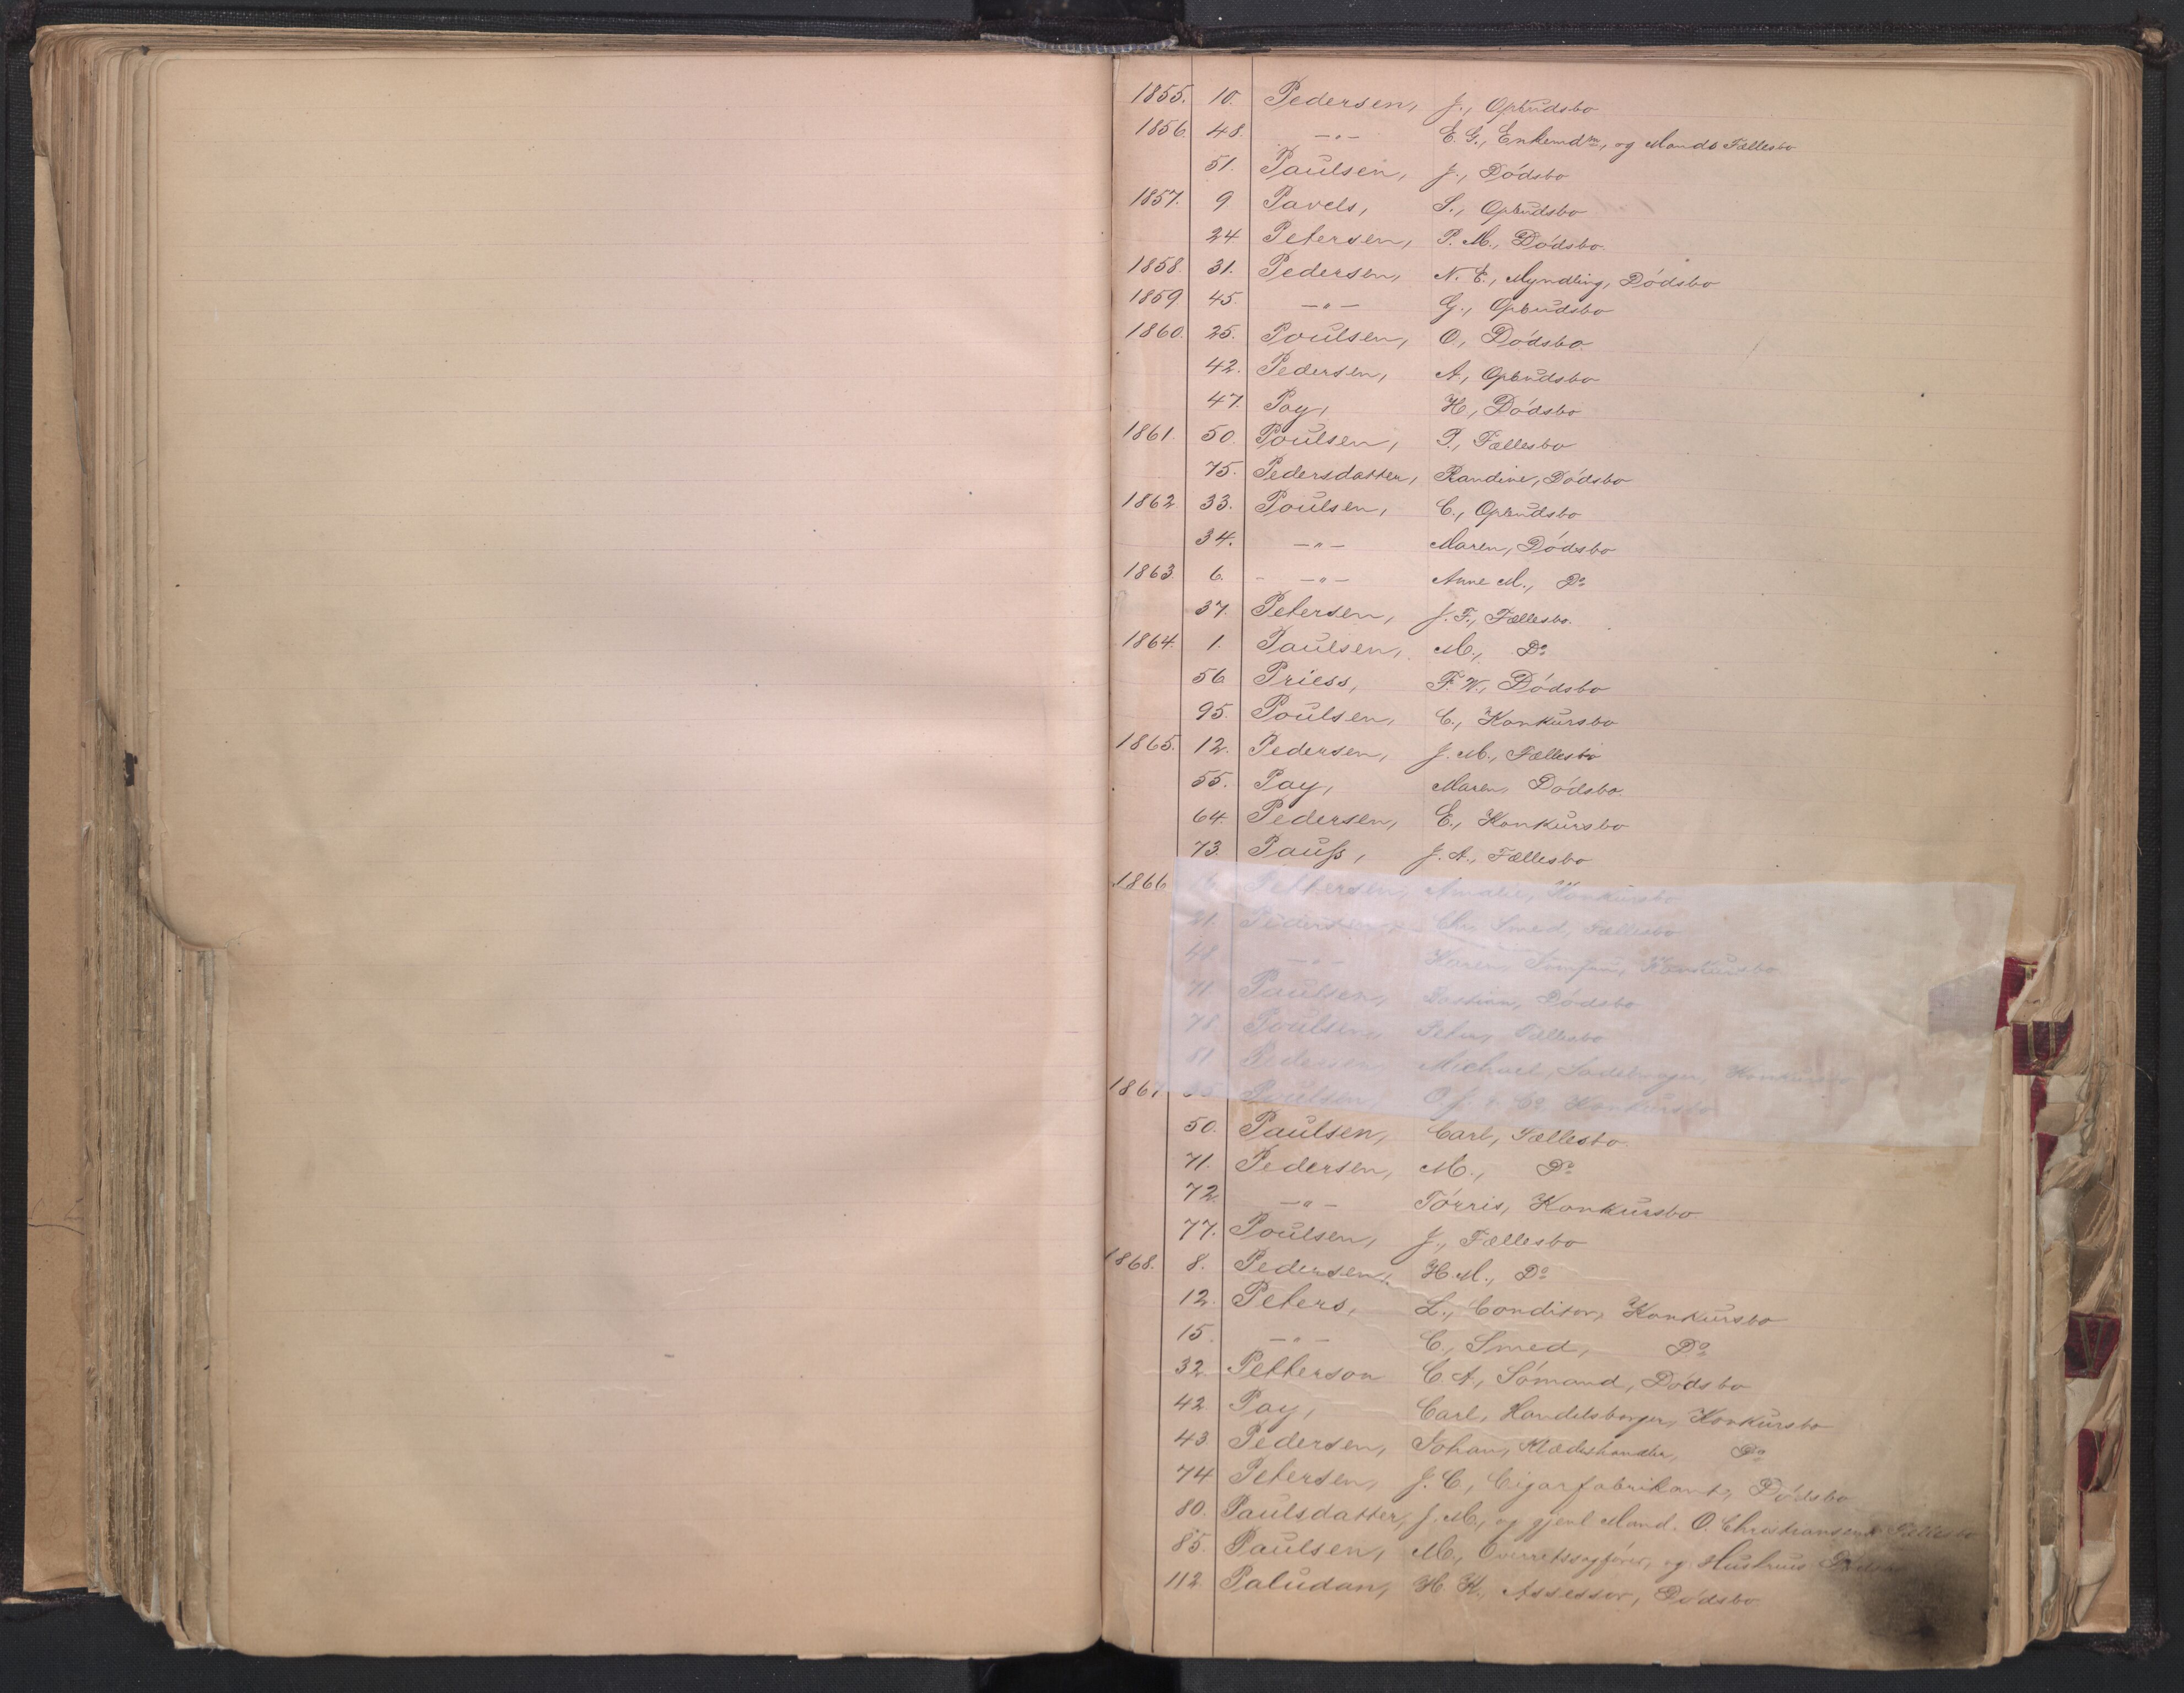 1855. 10. Pedersen, J., Opbudsbo
1856. 48. —„— E. G., Enkemdm, og Mands Fællesbo
51. Paulsen, J., Dødsbo
1857. 9 Pavels, S., Opbudsbo
24. Petersen, P. M., Dødsbo.
1858. 31. Pedersen, N. E., Myndling, Dødsbo
1859 45. —„— G., Opbudsbo
1860. 25. Poulsen, O., Dødsbo.
42. Pedersen, A., Opbudsbo
47. Pay, H., Dødsbo
1861. 50. Poulsen, P., Fællesbo
75. Pedersdatter, Randine, Dødsbo
1862. 33. Poulsen, C., Opbudsbo
34. —„— Maren, Dødsbo
1863. 6. —„— Anne M., Do
37. Petersen, J. F., Fællesbo.
1864. 1. Paulsen, M., Do
56. Priess, F. W., Dødsbo
95. Poulsen, C., Konkursbo
1865. 12. Pedersen, J. M., Fællesbo
55. Pay, Maren, Dødsbo.
64. Pedersen, E., Konkursbo
73. Pauss, J. A., Fællesbo
1866 16. Pettersen, Amalie, Konkursbo
21. Pedersen, Chr. Smed, Fællesbo
48. —„— Karen, Konkursbo
71. Paulsen, Bastian, Dødsbo
78. Poulsen, Peter, Fællesbo
81. Pedersen, Michael, Konkursbo
1867 Poulsen, O. J. & Co, Konkursbo
50. Paulsen, Carl, Fællesbo.
71. Pedersen, M., Do
72. —„— Tørris, Konkursbo
77. Poulsen, J., Fællesbo
1868. 8. Pedersen, H. M., Do
12. Peters, L., Conditor, Konkursbo
15. —„— C., Smed, Do
32. Petterson C. A., Sømand, Dødsbo
42. Pay, Carl, Handelsborger, Konkursbo
43. Pedersen, Johan, Klædeshandler, Do
74 Petersen, J. C., Cigarfabrikant, Dødsbo
80. Paulsdatter, J. M., og gjenl. Mand. O. Christiansens Fællesbo
85. Paulsen, M., Overretssagfører, og Hustrues Dødsbo
112. Paludan, H. K., Assessor, Dødsbo.